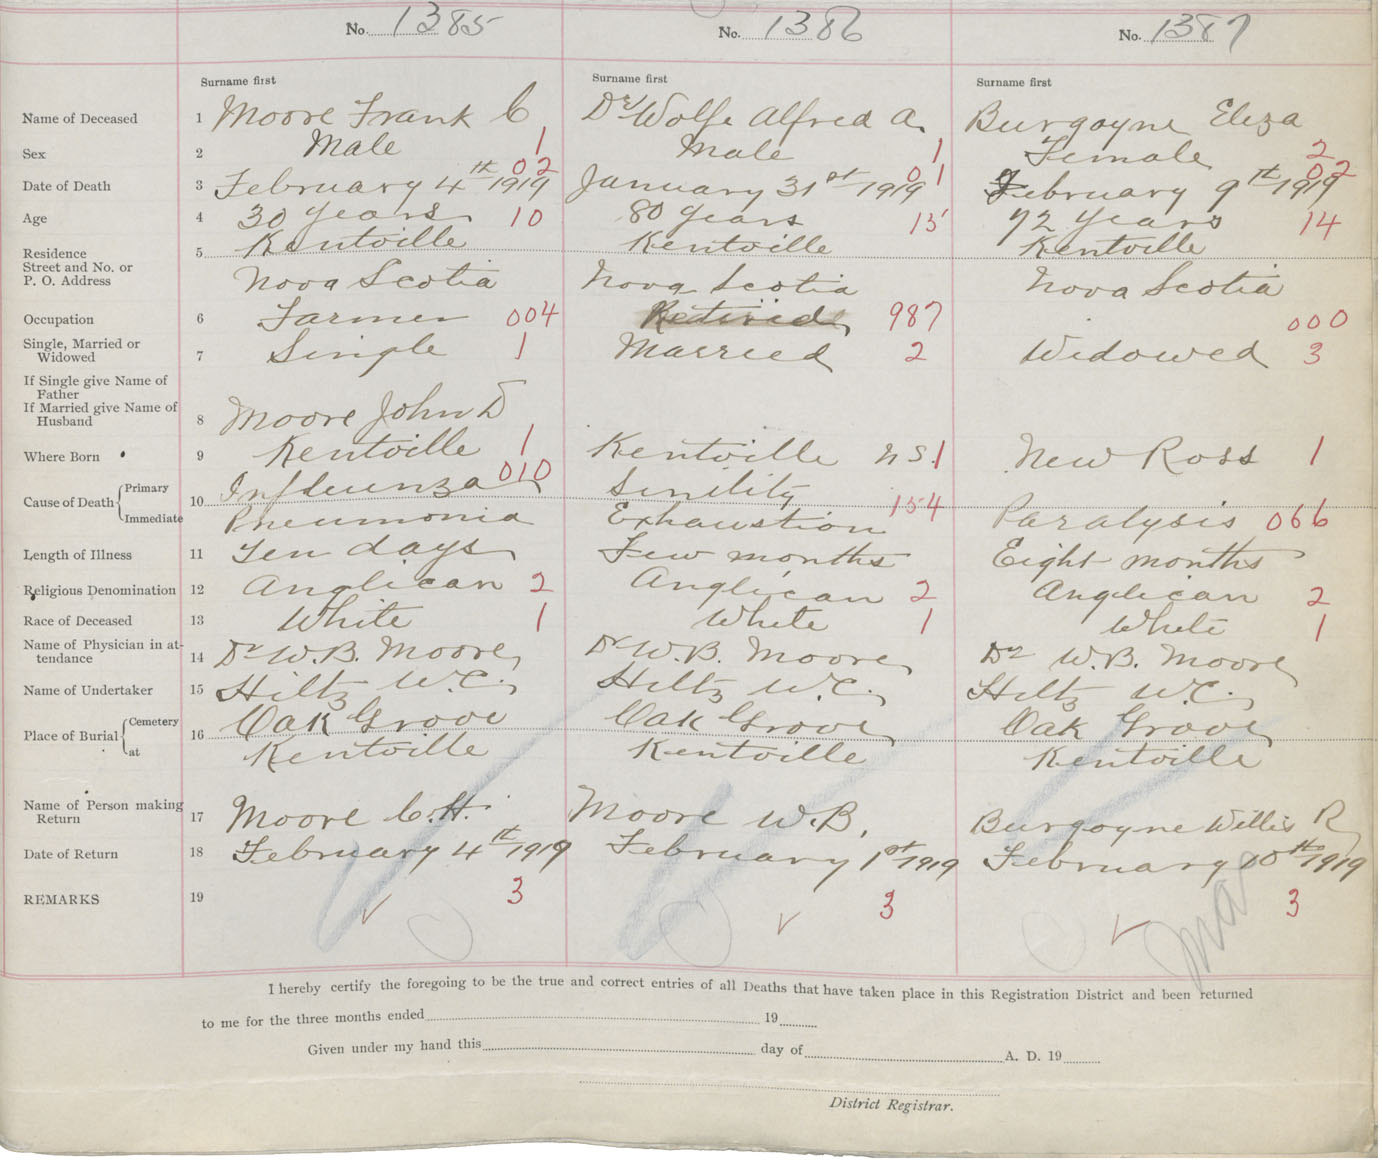 No. 1385 No. 1386 No. 1387
Surname first Surname first Surname first
Name of Deceased 1 Moore Frank C De Wolfe Alfred A. Burgoyne Eliza
Sex 2 Male 1 Male 1 Female 2
Date of Death 3 February 4th 1919 02 January 31st 1919 01 February 9th 1919 02
Age 4 30 years 10 80 years 15 72 years 14
Residence 5 Kentville Kentville Kentville
Street and No. or
P. O. Address Nova Scotia Nova Scotia Nova Scotia
Occupation 6 Farmer 004 Retired 987 000
Single, Married or
Widowed 7 Single 1 Married 2 Widowed 3
If Single give Name of
Father
If Married give Name of
Husband 8 Moore John D
Where Born 9 Kentville 1 Kentville N.S. 1 New Ross 1
Cause of Death Primary 10 Influenza 010 Sinility 154
Immediate Pneumonia Exhaustion Paralysis 066
Length of Illness 11 Ten days Few months Eight months
Religious Denomination 12 Anglican 2 Anglican 2 Anglican 2
Race of Deceased 13 White 1 White 1 White 1
Name of Physician in at-
tendance 14 Dr W.B. Moore Dr W.B. Moore Dr W.B. Moore
Name of Undertaker 15 Hiltz W.C. Hiltz W.C. Hiltz W.C.
Place of Burial Cemetery 16 Oak Grove Oak Grove Oak Grove
at Kentville Kentville Kentville
Name of Person making
Return 17 Moore C.H. Moore W.B. Burgoyne Willis R
Date of Return 18 February 4th 1919 February 1st 1919 February 10th 1919
REMARKS 19 3 3 3
I hereby certify the foregoing to be the true and correct entries of all Deaths that have taken place in this Registration District and been returned
to me for the three months ended 19
Given under my hand this day of A. D. 19
District Registrar.